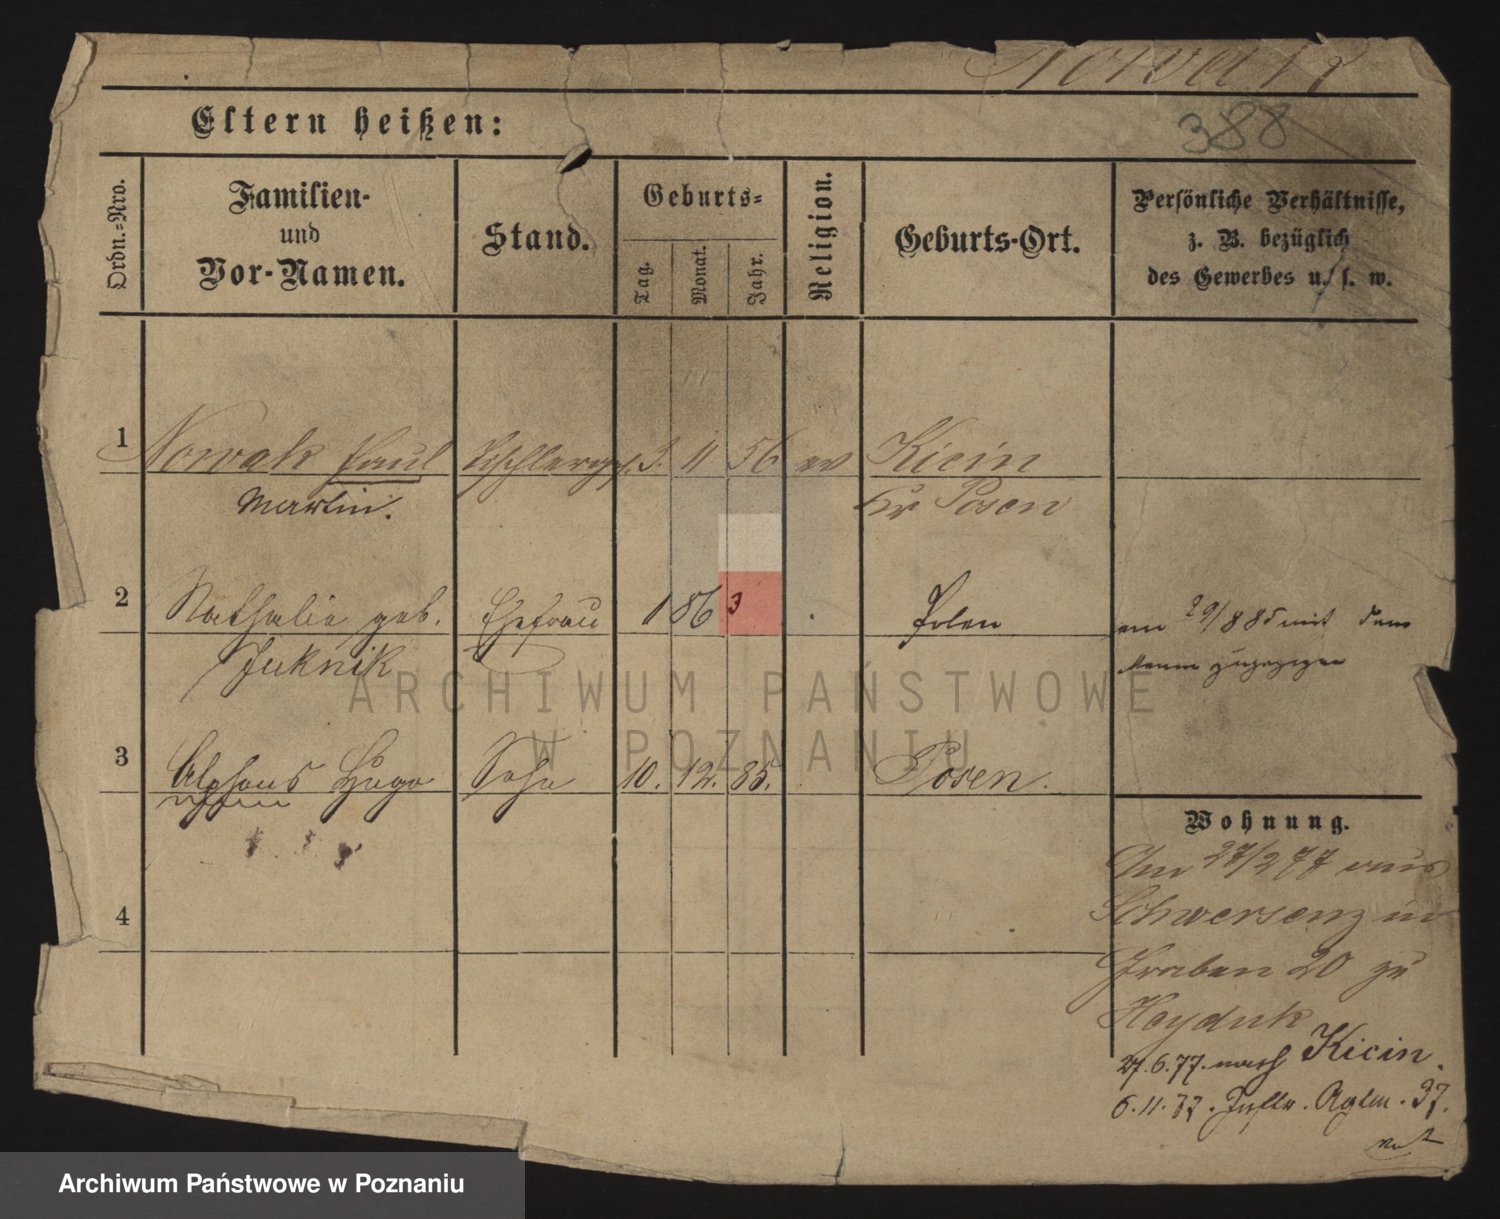 388
Eltern heißen:
Ordn.-Nro.
Familien-
und
Vor-Namen.
Stand.
Geburts-
Tag.
Monat.
Jahr.
Religion.
Geburts-Ort.
Persönliche Verhältnisse,
z. B. bezüglich
des Gewerbes u. s. w.
1 Nowak Paul Tischlerges. 3. 11 56 ev Kicin
Martin. Kr Posen
2 Nathalie geb. Ehefrau 1 86 3 Polen
Juknik
am 29/8 85 mit dem
Manne zugezogen
ARCHIWUM PAŃSTWOWE
W POZNANIU
3 Alphons Hugo Sohn 10. 12. 85. Posen.
Wohnung.
Am 27/2 77 aus
Schwersenz in
4
Graben 20 zu
Heyduk
27.6.77. nach Kicin.
6.11.77. 37.
Archiwum Państwowe w Poznaniu